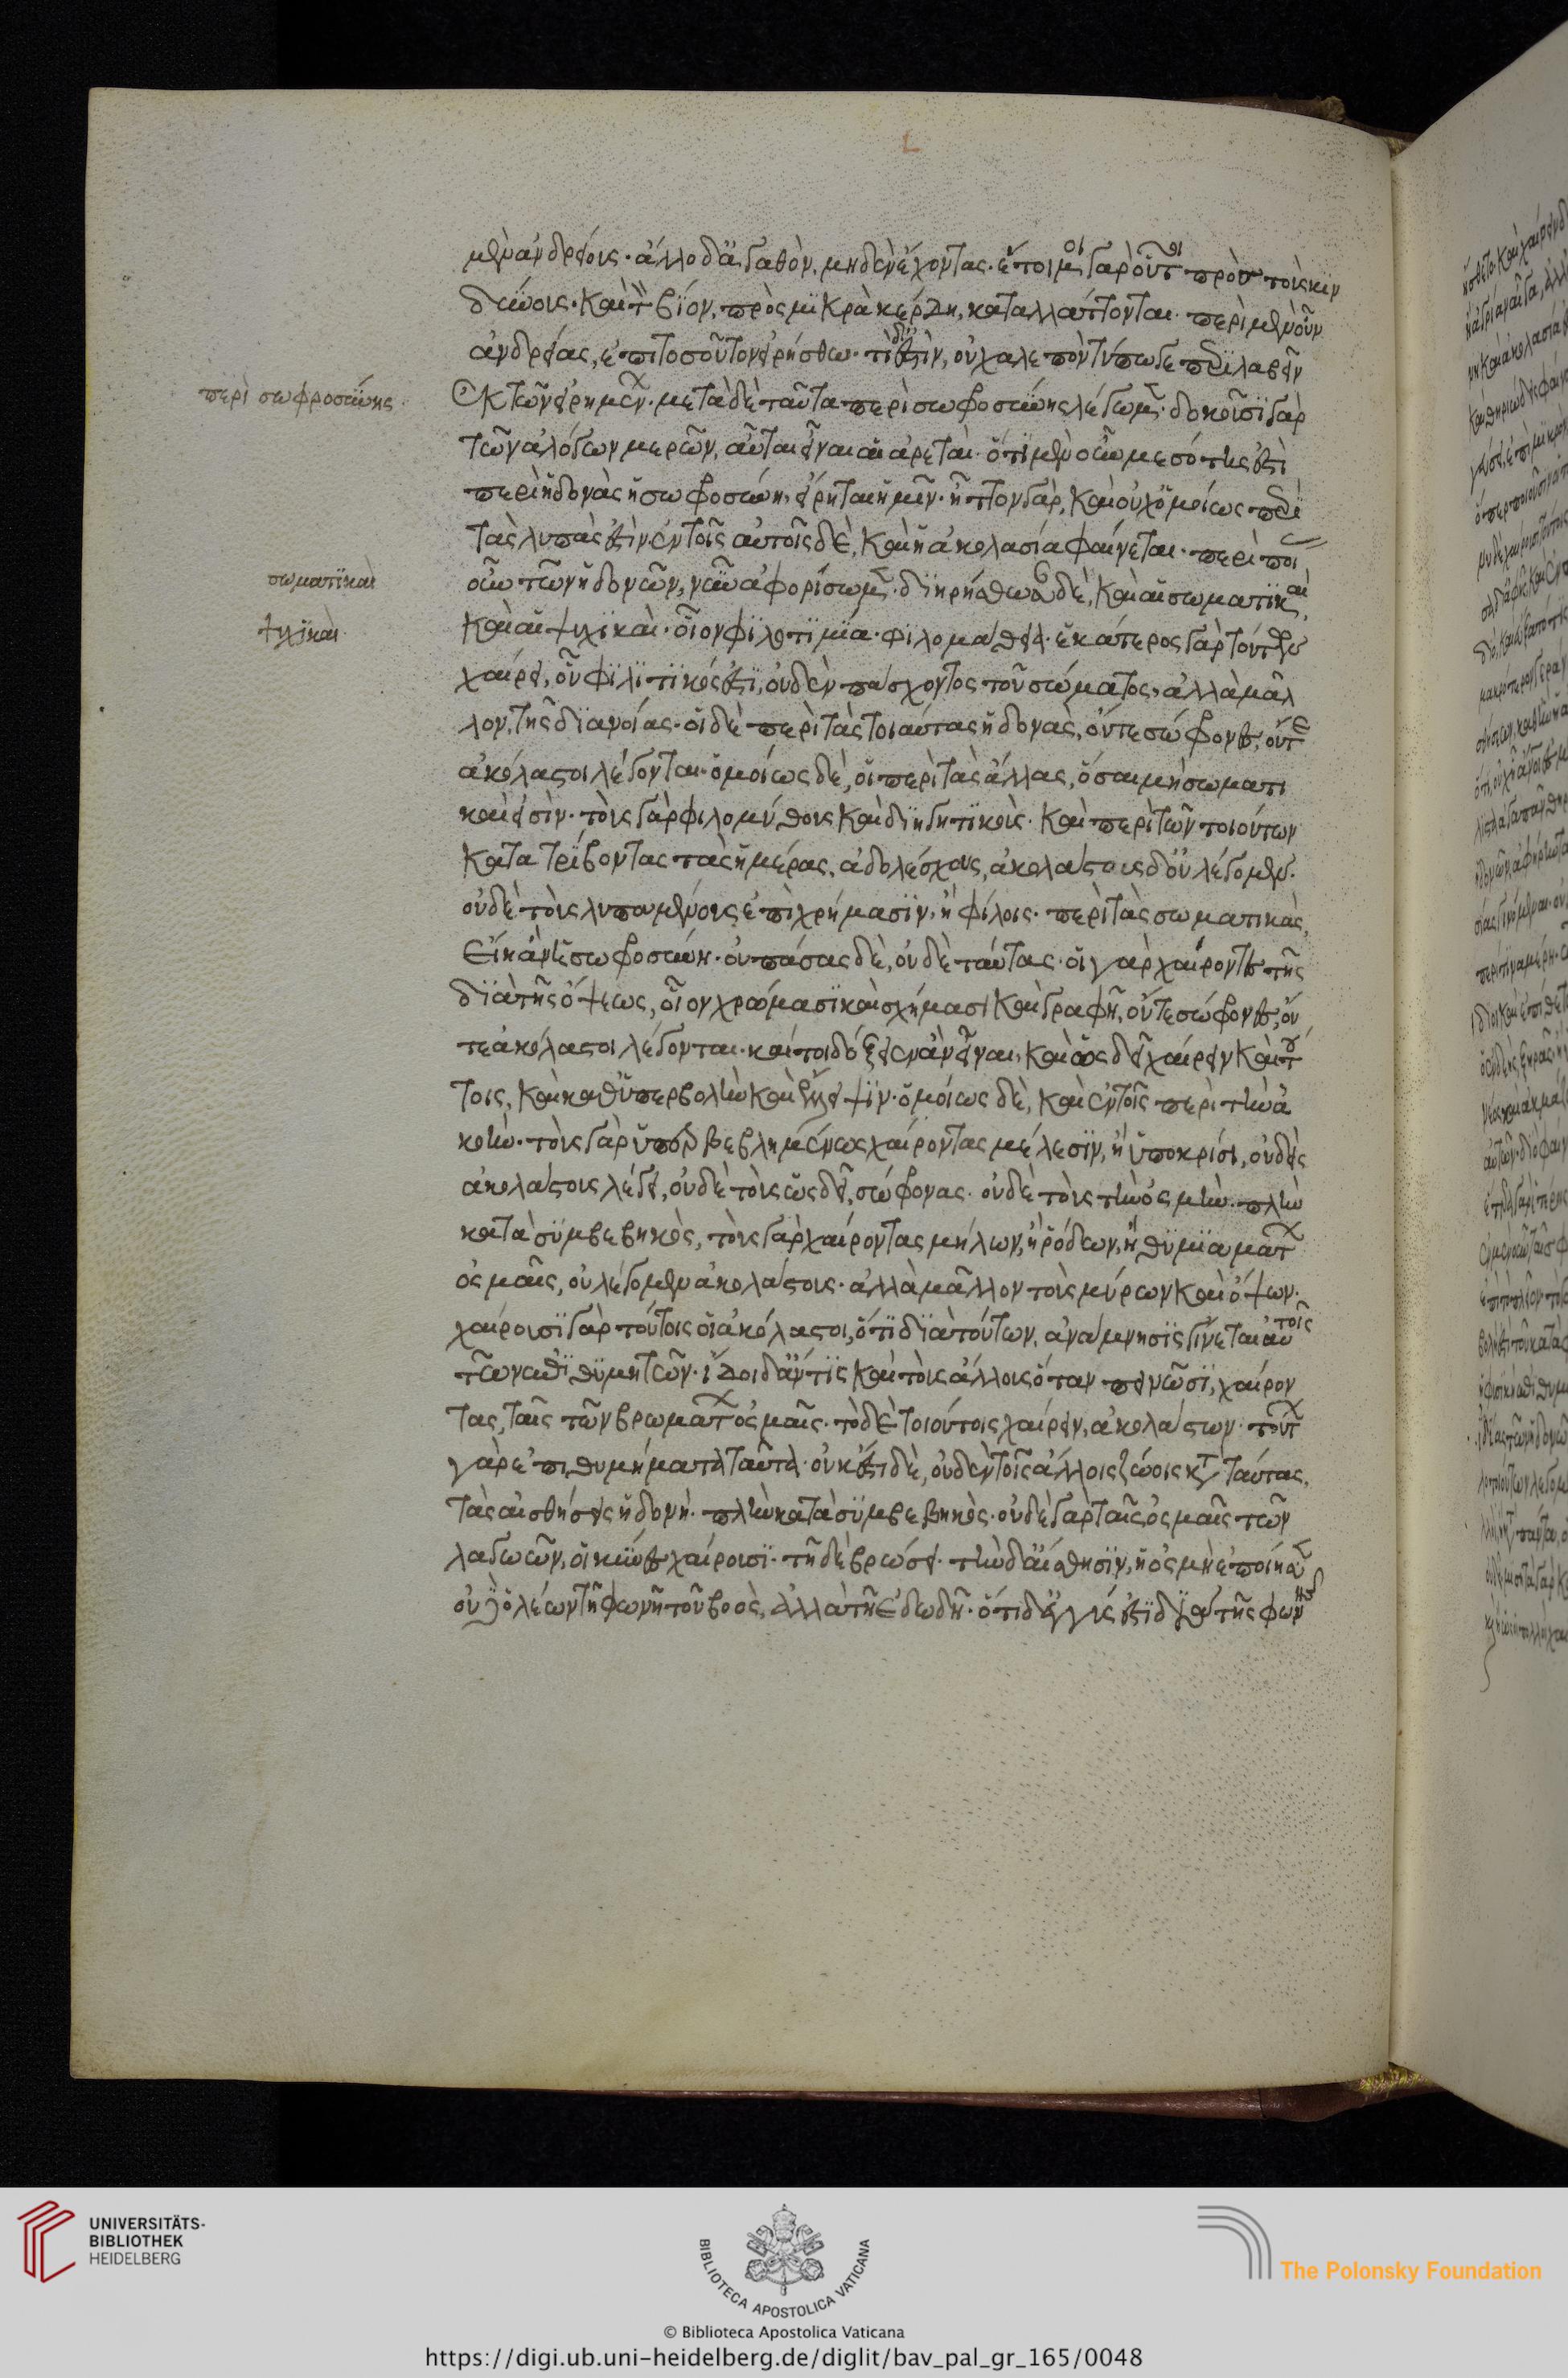 μὲν ἀνδρείους· ἄλλο δ' ἀγαθὸν, μηδὲν ἔχοντας· ἕτοιμοι γὰρ οὗτοι πρὸς τοὺς κιν
δύνους· καὶ τὸν βίον, πρὸς μικρὰ κέρδη, καταλλάττονται. περὶ μὲν οὖν
ἀνδρείας, ἐπὶ τοσοῦτον εἰρήσθω· τί δ' ἐστὶν, οὐ χαλεπὸν τύπῳ γε περιλαβεῖν
περὶ σωφροσύνης
ἐκ τῶν εἰρημένων. μετὰ δὲ ταῦτα περὶ σωφροσύνης λέγωμεν· δοκοῦσι γὰρ
τῶν ἀλόγων μερῶν, αὗται εἶναι αἱ ἀρεταί. ὅτι μὲν οὖν μεσότης ἐστὶ
περὶ ἡδονὰς ἡ σωφροσύνη, εἴρηται ἡμῖν· ἧττον γὰρ, καὶ οὐχ ὁμοίως περὶ
τὰς λύπας ἐστὶν ἐν τοῖς αὐτοῖς δὲ, καὶ ἡ ἀκολασία φαίνεται. περὶ ποί
σωματικαὶ
ψυχικαὶ
οὖν τῶν ἡδονῶν, νῦν ἀφορίσωμεν· διῃρήσθωσαν δὲ, καὶ αἱ σωματικαὶ,
καὶ αἱ ψυχικαὶ· οἷον φιλοτιμία· φιλομάθεια· ἑκάτερος γὰρ τούτων
χαίρει, οὗ φιλητικός ἐστι, οὐδὲν πάσχοντος τοῦ σώματος, ἀλλὰ μᾶλ
λον, τῆς διανοίας· οἱ δὲ περὶ τὰς τοιαύτας ἡδονὰς, οὔτε σώφρονες, οὔτε
ἀκόλαστοι λέγονται· ὁμοίως δὲ, οἱ περὶ τὰς ἄλλας, ὅσαι μὴ σωματι
καὶ εἰσὶν· τοὺς γὰρ φιλομύθους καὶ διηγητικοὺς· καὶ περὶ τῶν τοιούτων
κατατρίβοντας τὰς ἡμέρας, ἀδολέσχους, ἀκολάστους δ' οὐ λέγομεν.
οὐδὲ τοὺς λυπουμένους ἐπὶ χρήμασιν, ἢ φίλοις. περὶ τὰς σωματικὰς,
εἴη ἂν ἡ σωφροσύνη· οὐ πάσας δὲ, οὐδὲ ταύτας· οἱ γὰρ χαίροντες τῆς
διὰ τῆς ὄψεως, οἷον χρώμασι καὶ σχήμασι καὶ γραφῇ, οὔτε σώφρονες, οὔ
τε ἀκόλαστοι λέγονται. καίτοι δόξειεν ἂν εἶναι, καὶ ὡς δεῖ χαίρειν καὶ τού
τοις, καὶ καθ' ὑπερβολὴν καὶ ἔλλειψιν· ὁμοίως δὲ, καὶ ἐν τοῖς περὶ τὴν ἀ
κοὴν· τοὺς γὰρ ὑπερβεβλημένως χαίροντας μέλεσιν, ἢ ὑποκρίσει, οὐδεὶς
ἀκολάστους λέγει, οὐδὲ τοὺς ὡς δεῖ, σώφρονας. οὐδὲ τοὺς τὴν ὀσμὴν. πλὴν
κατὰ συμβεβηκὸς, τοὺς γὰρ χαίροντας μήλων, ἢ ῥόδων, ἢ θυμιαμάτων
ὀσμαῖς, οὐ λέγομεν ἀκολάστους· ἀλλὰ μᾶλλον τοὺς μύρων καὶ ὄψων.
χαίρουσι γὰρ τούτοις οἱ ἀκόλαστοι, ὅτι διὰ τούτων, ἀνάμνησις γίνεται αὐτοῖς
τῶν ἐπιθυμητῶν· ἴδοι δ' ἄν τις καὶ τοὺς ἄλλους ὅταν πεινῶσι, χαίρον
τας, ταῖς τῶν βρωμάτων ὀσμαῖς. τὸ δὲ τοιούτοις χαίρειν, ἀκολάστων· τούτων
γὰρ ἐπιθυμήματα ταῦτα· οὐκ ἔστι δὲ, οὐδ' ἐν τοῖς ἄλλοις ζώοις κατὰ ταύτας,
τὰς αἰσθήσεις ἡδονὴ· πλὴν κατὰ συμβεβηκὸς· οὐδὲ γὰρ ταῖς ὀσμαῖς τῶν
λαγωῶν, οἱ κύνες χαίρουσι· τῇ δὲ βρώσει· τὴν δ' αἴσθησιν, ἡ ὀσμὴ ἐποίησεν
οὐδ' ὁ λέων τῇ φωνῇ τοῦ βοὸς, ἀλλὰ τῇ ἐδωδῇ· ὅτι δ' ἐγγύς ἐστι διὰ τῆς φωνῆς
UNIVERSITÄTS-
BIBLIOTHEK
HEIDELBERG
BIBLIOTECA APOSTOLICA VATICANA
The Polonsky Foundation
© Biblioteca Apostolica Vaticana
https://digi.ub.uni-heidelberg.de/diglit/bav_pal_gr_165/0048